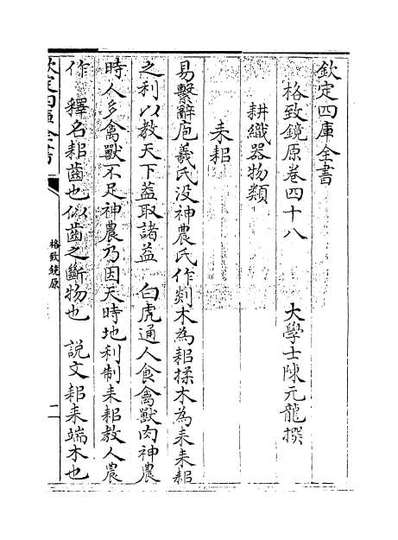 欽定四庫全書
格致鏡原卷四十八
大學士陳元龍撰
耕織器物類
耒耜
易繫辭庖羲氏没神農氏作剡木為耜揉木為耒耒耜
之利以教天下葢取諸益　白虎通人食禽獸肉神農
時人多禽獸不足神農乃因天時地利制耒耜教人農
作　釋名耜齒也似齒之斷物也　說文耜耒端木也
欽定四庫全書
格致鏡原